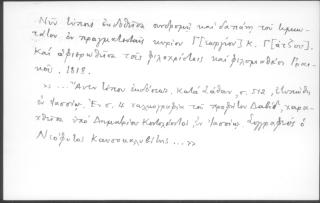 Νῦν τύποις ἐκδοθεῖσα συνδρομῇ καὶ δαπάνῃ τοῦ τιμιω-
τάτου ἐν πραγματευταῖς κυρίου Γ[εωργίου] Κ. Γ[άτζου].
Καὶ ἀφιερωθεῖσα τοῖς φιλοχρίστοις καὶ φιλομαθέσι Γραι-
κοῖς. 1818.
»... Ἄνευ τόπου ἐκδόσεως. Κατὰ Σάθαν, σ. 512, ἐτυπώθη
ἐν Ἰασσίῳ. Ἐν σ. 4 χαλκογραφία τοῦ προφήτου Δαβίδ, χαρα-
χθεῖσα ὑπὸ Δημητρίου ἐν Ἰασσίῳ. Συγγραφεὺς ὁ
Νεόφυτος Καυσοκαλυβίτης...»